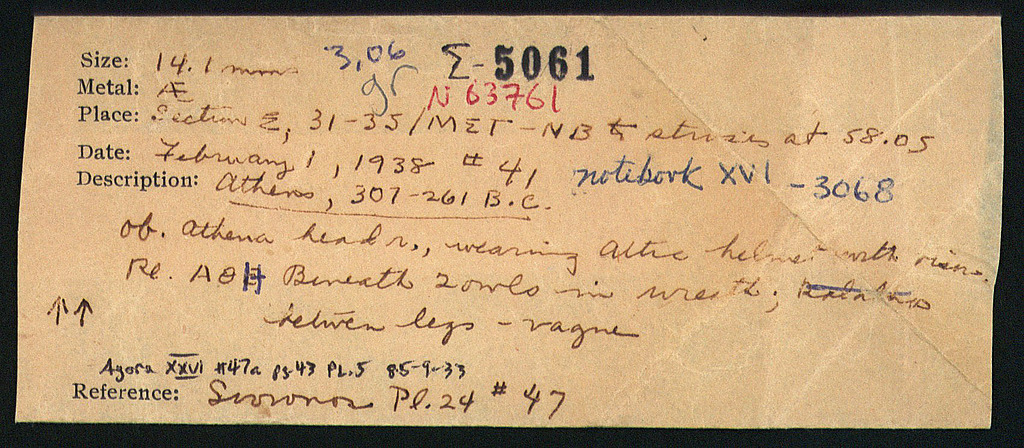 Size: 14.1 mm 3,06 gr Σ-5061
Metal: Æ N 63761
Place: Section Σ, 31-35/ΜΣΤ-ΝΒ strosis at 58.05
Date: February 1, 1938 # 41 notebook XVI - 3068
Description: Athens, 307-261 B.C.
ob. Athena head r., wearing Attic helmet with visor.
Re. ΑΘΗ Beneath 2 owls in wreath;
between legs - vague
↑↑
Agora XXVI #47a pg. 43 PL.5 85-9-33
Reference: Svoronos Pl. 24 # 47